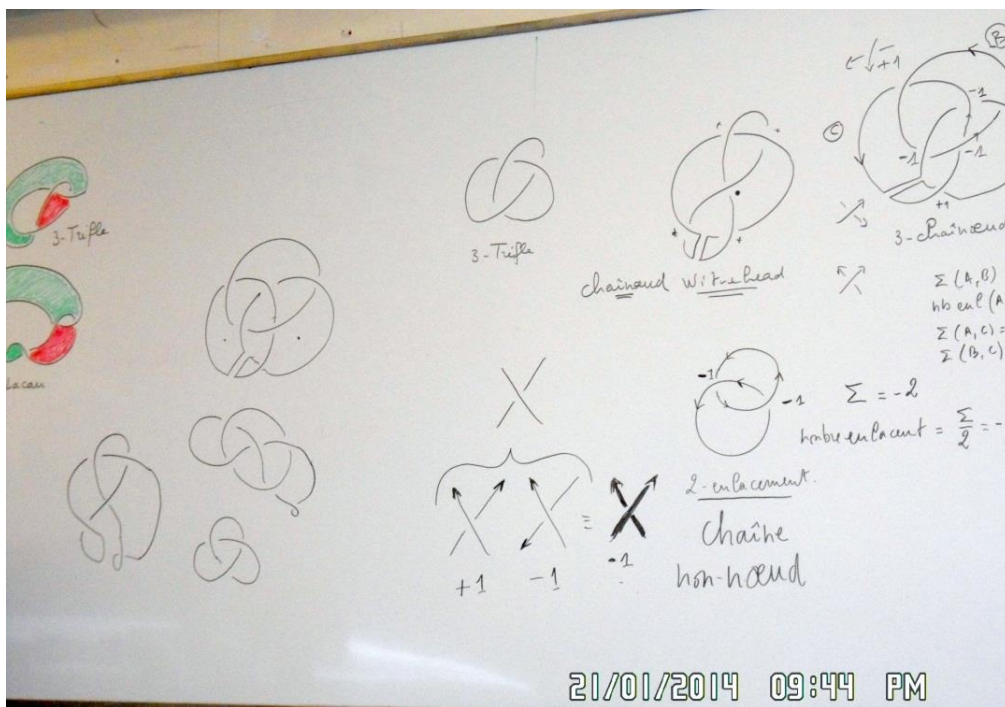 3-Trifle
Lacan
3-Trifle
chaînœud Withehead
B
C
+1
-1
-1
-1
+1
3-chaînœud
Σ (A,B)
nb enl (A
Σ (A,C) =
Σ (B,C)
-1
-1
Σ = -2
nombre enlacent = Σ/2 = -
2-enlacement.
chaîne
non-nœud
+1 -1 ≡ -1
21/01/2014 09:44 PM